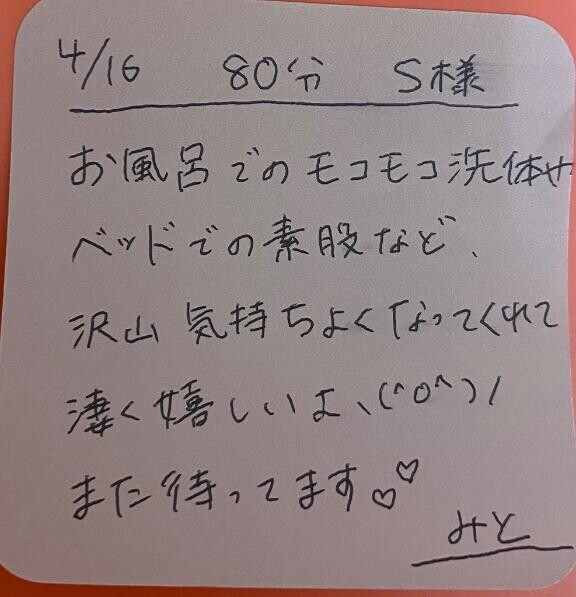 4/16 80分 S様
お風呂でのモコモコ洗体や
ベッドでの素股など、
沢山気持ちよくなってくれて
凄く嬉しいよ、(^o^)/
また待ってます♡♡
みと